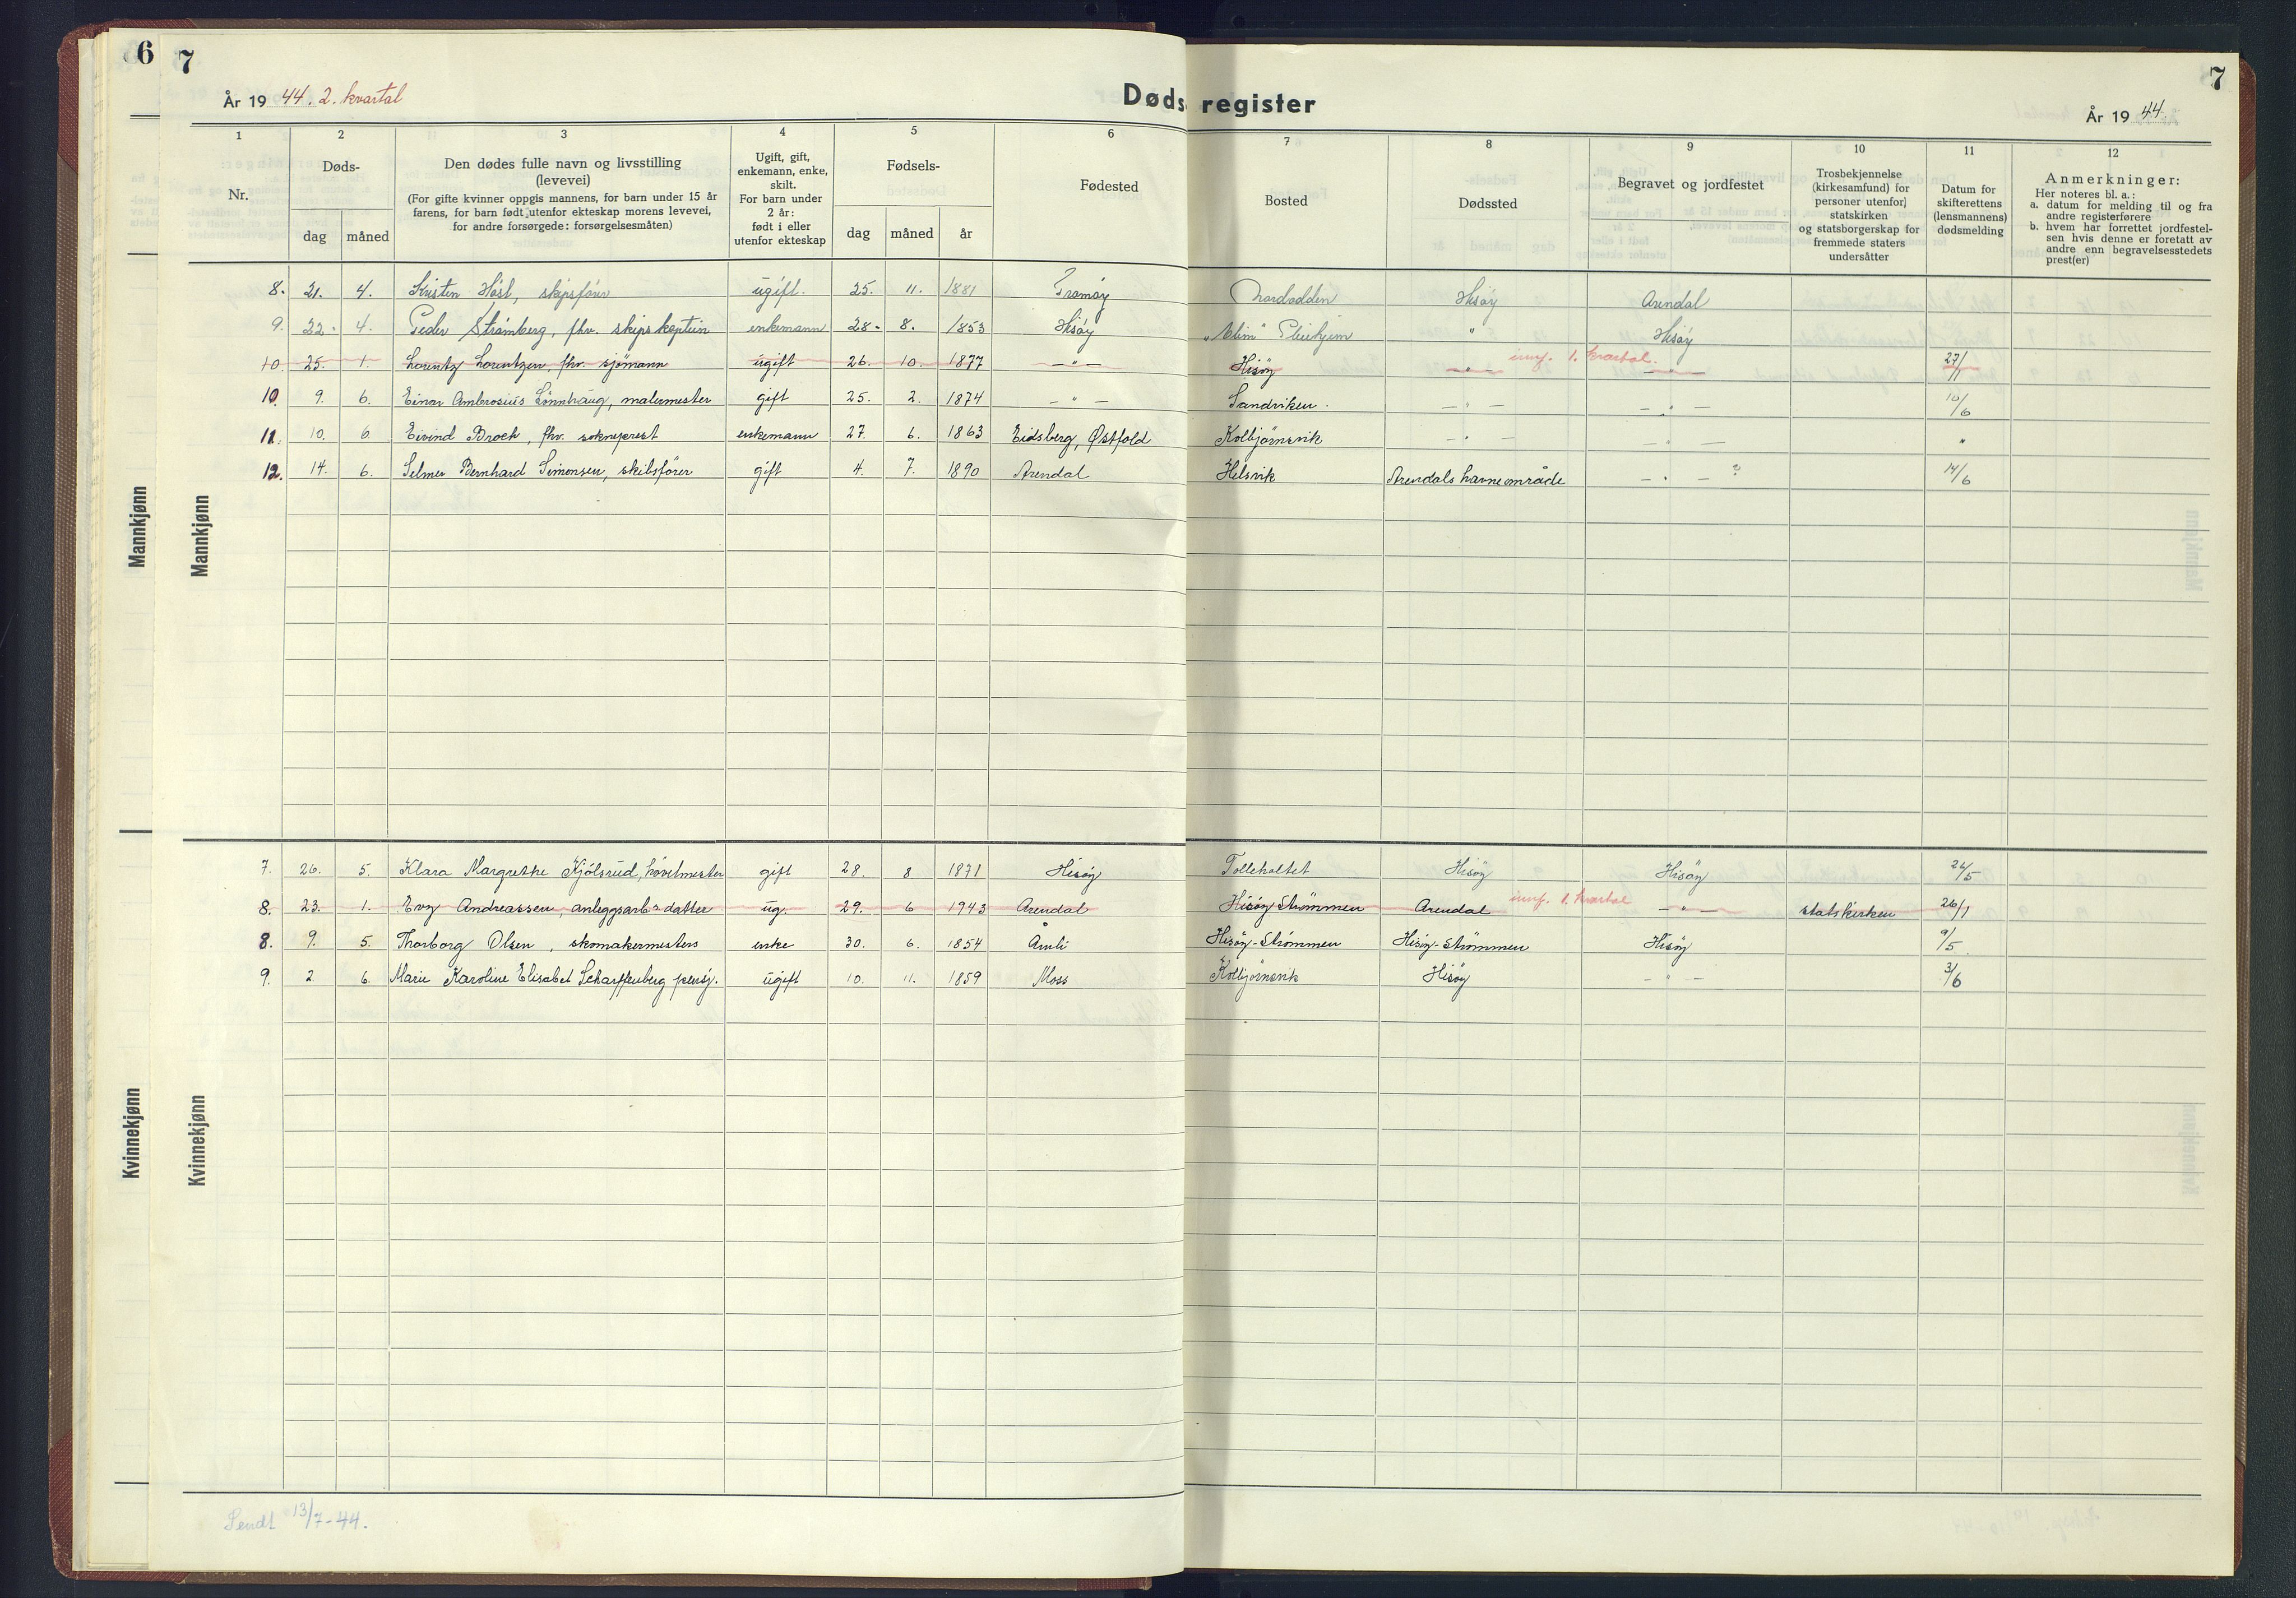 6
7
7
År 19 44. 2. kvartal
Dødsregister
År 19 44.
1
2
3
4
5
6
7
8
9
10
11
12
Nr.
Døds-
dag
måned
Den dødes fulle navn og livsstilling
(levevei)
(For gifte kvinner oppgis mannens, for barn under 15 år
farens, for barn født utenfor ekteskap morens levevei,
for andre forsørgede: forsørgelsesmåten)
Ugift, gift,
enkemann, enke,
skilt.
For barn under
2 år:
født i eller
utenfor ekteskap
Fødsels-
dag
måned
år
Fødested
Bosted
Dødssted
Begravet og jordfestet
Trosbekjennelse
(kirkesamfund) for
personer utenfor
statskirken
og statsborgerskap for
fremmede staters
undersåtter
Datum for
skifterettens
(lensmannens)
dødsmelding
Anmerkninger:
Her noteres bl. a.:
a. datum for melding til og fra
andre registerførere
b. hvem har forrettet jordfestel-
sen hvis denne er foretatt av
andre enn begravelsesstedets
prest(er)
Mannkjønn
Mannkjønn
8. 21. 4. Kristen Høsl, skipsfører ugift. 25. 11. 1881 Tromøy Nordodden Hisøy Arendal
9. 22. 4. Peder Strømberg, fhv. skipskaptein enkemann 28. 8. 1853 Hisøy „Elim" Pleiehjem " Hisøy
10. 25. 1. Lorentz Lorentzen, fhv. sjømann ugift 26. 10. 1877 — " — Hisøy — " — innf. 1. kvartal. — " — 27/1
10. 9. 6. Einar Ambrosius Lønnhaug, malermester gift 25. 2. 1874 — " — Sandviken. — " — — " — 10/6
11. 10. 6. Eivind Broch, fhv. sokneprest enkemann 27. 6. 1863 Eidsberg, Østfold Kolbjørnsvik — " — — " — "
12. 14. 6. Selmer Bernhard Simonsen, skibsfører gift 4. 7. 1890 Arendal Helsvik Arendals havneområde — " — ? 14/6
Kvinnekjønn
Kvinnekjønn
7. 26. 5. Klara Margrethe Kjølsrud, hovilmester gift 28. 8 1871 Hisøy Tolleholtet Hisøy Hisøy 26/5
8. 23. 1. Evy Andreassen, anleggsarb.s datter ug. 29. 6 1943 Arendal Hisøy Strømmen Arendal innf. 1. kvartal — " — statskirken 26/1
8. 9. 5. Thorborg Olsen, skomakermesters enke 30. 6. 1854 Åmli Hisøy-Strømmen Hisøy-Strømmen Hisøy 9/5
9. 2 6. Marie Karoline Elisabet Scharffenberg pensj. ugift 10. 11. 1859 Moss Kolbjørnsvik Hisøy — " — 3/6
Sendt 13/7-44.